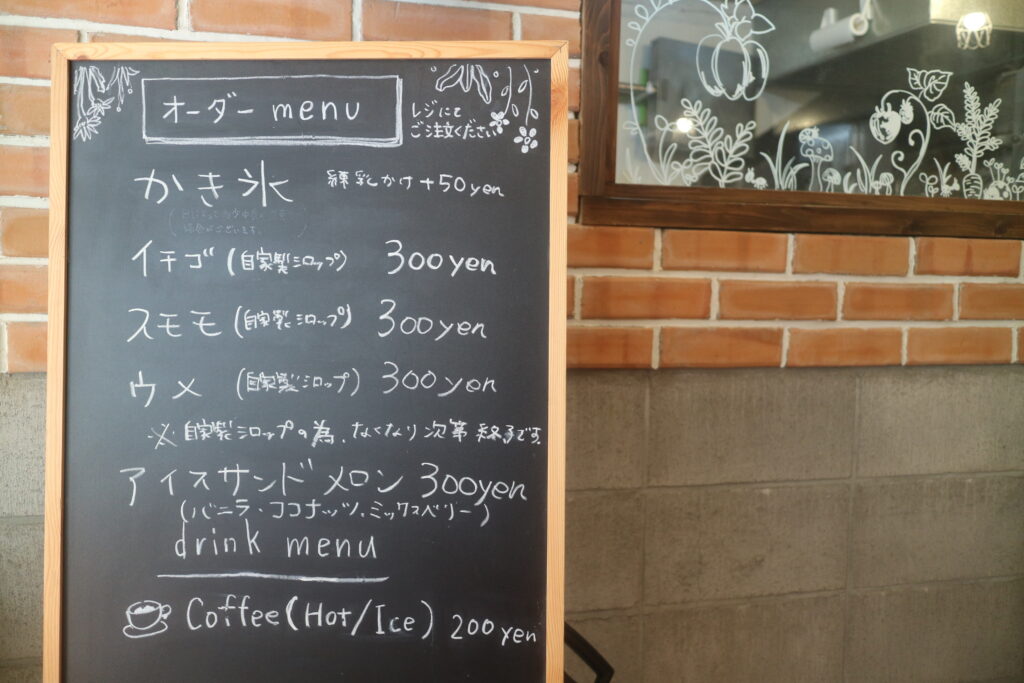 オーダー menu
レジにて
ご注文ください
かき氷 練乳かけ+50yen
イチゴ(自家製シロップ) 300yen
スモモ(自家製シロップ) 300yen
ウメ (自家製シロップ) 300yen
※自家製シロップの為、なくなり次第終了です。
アイスサンドメロン 300yen
(バニラ・ココナッツ・ミックスベリー)
drink menu
Coffee(Hot/Ice) 200yen